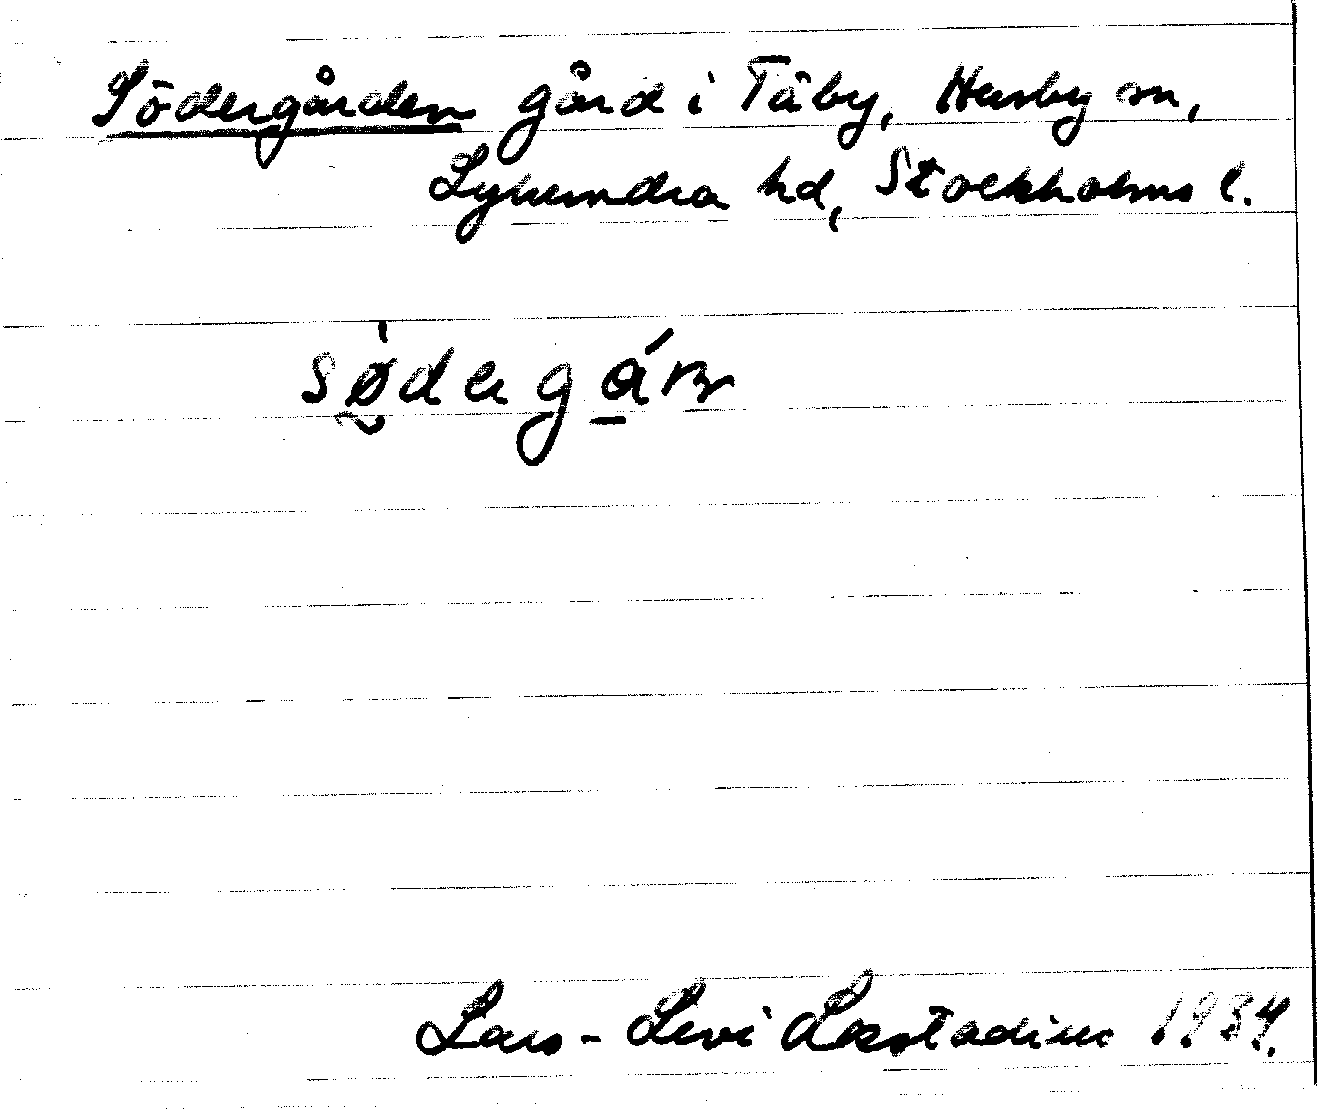 Södergården gård i Täby, Husby sn,
Lyhundra hd, Stockholms l.
Lars-Levi Læstadius 1934.